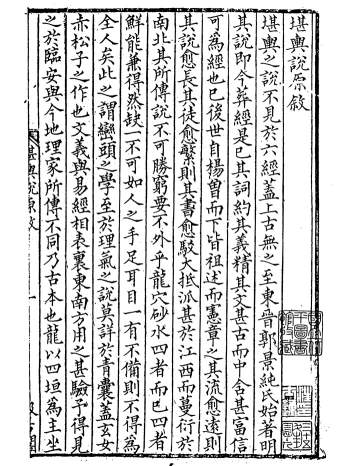 堪輿說原敘
堪輿之說不見於六經蓋上古無之至東晉郭景純氏始著明
其說即今葬經是已其詞約其義精其文甚古而中含甚富信
可為經也已後世自楊曾而下皆祖述而憲章之其流愈遠則
其說愈長其徒愈繁則其書愈駁大抵派甚於江西而蔓衍於
南北其所傳說不可勝窮要不外乎龍穴砂水四者而已四者
鮮能兼得然缺一不可如人之手足耳目一有不備則不得為
全人矣此之謂巒頭之學至於理氣之說莫詳於青囊蓋玄女
赤松子之作也文義與易經相表裏東南方用之甚驗予得見
之於臨安與今地理家所傳不同乃古本也龍以四垣為主坐
堪輿說原敘
一